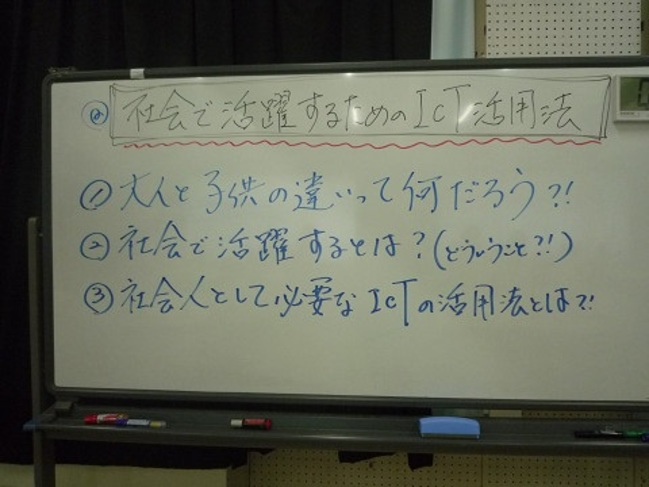 社会で活躍するためのICT活用法
① 大人と子供の違いって何だろう?!
② 社会で活躍するとは?(どういうこと?!)
③ 社会人として必要なICTの活用法とは?!